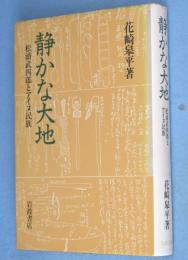 花崎皋平著
静かな大地
松浦武四郎とアイヌ民族
岩波書店
静かな大地
松浦武四郎とアイヌ民族
花崎皋平著
岩波書店